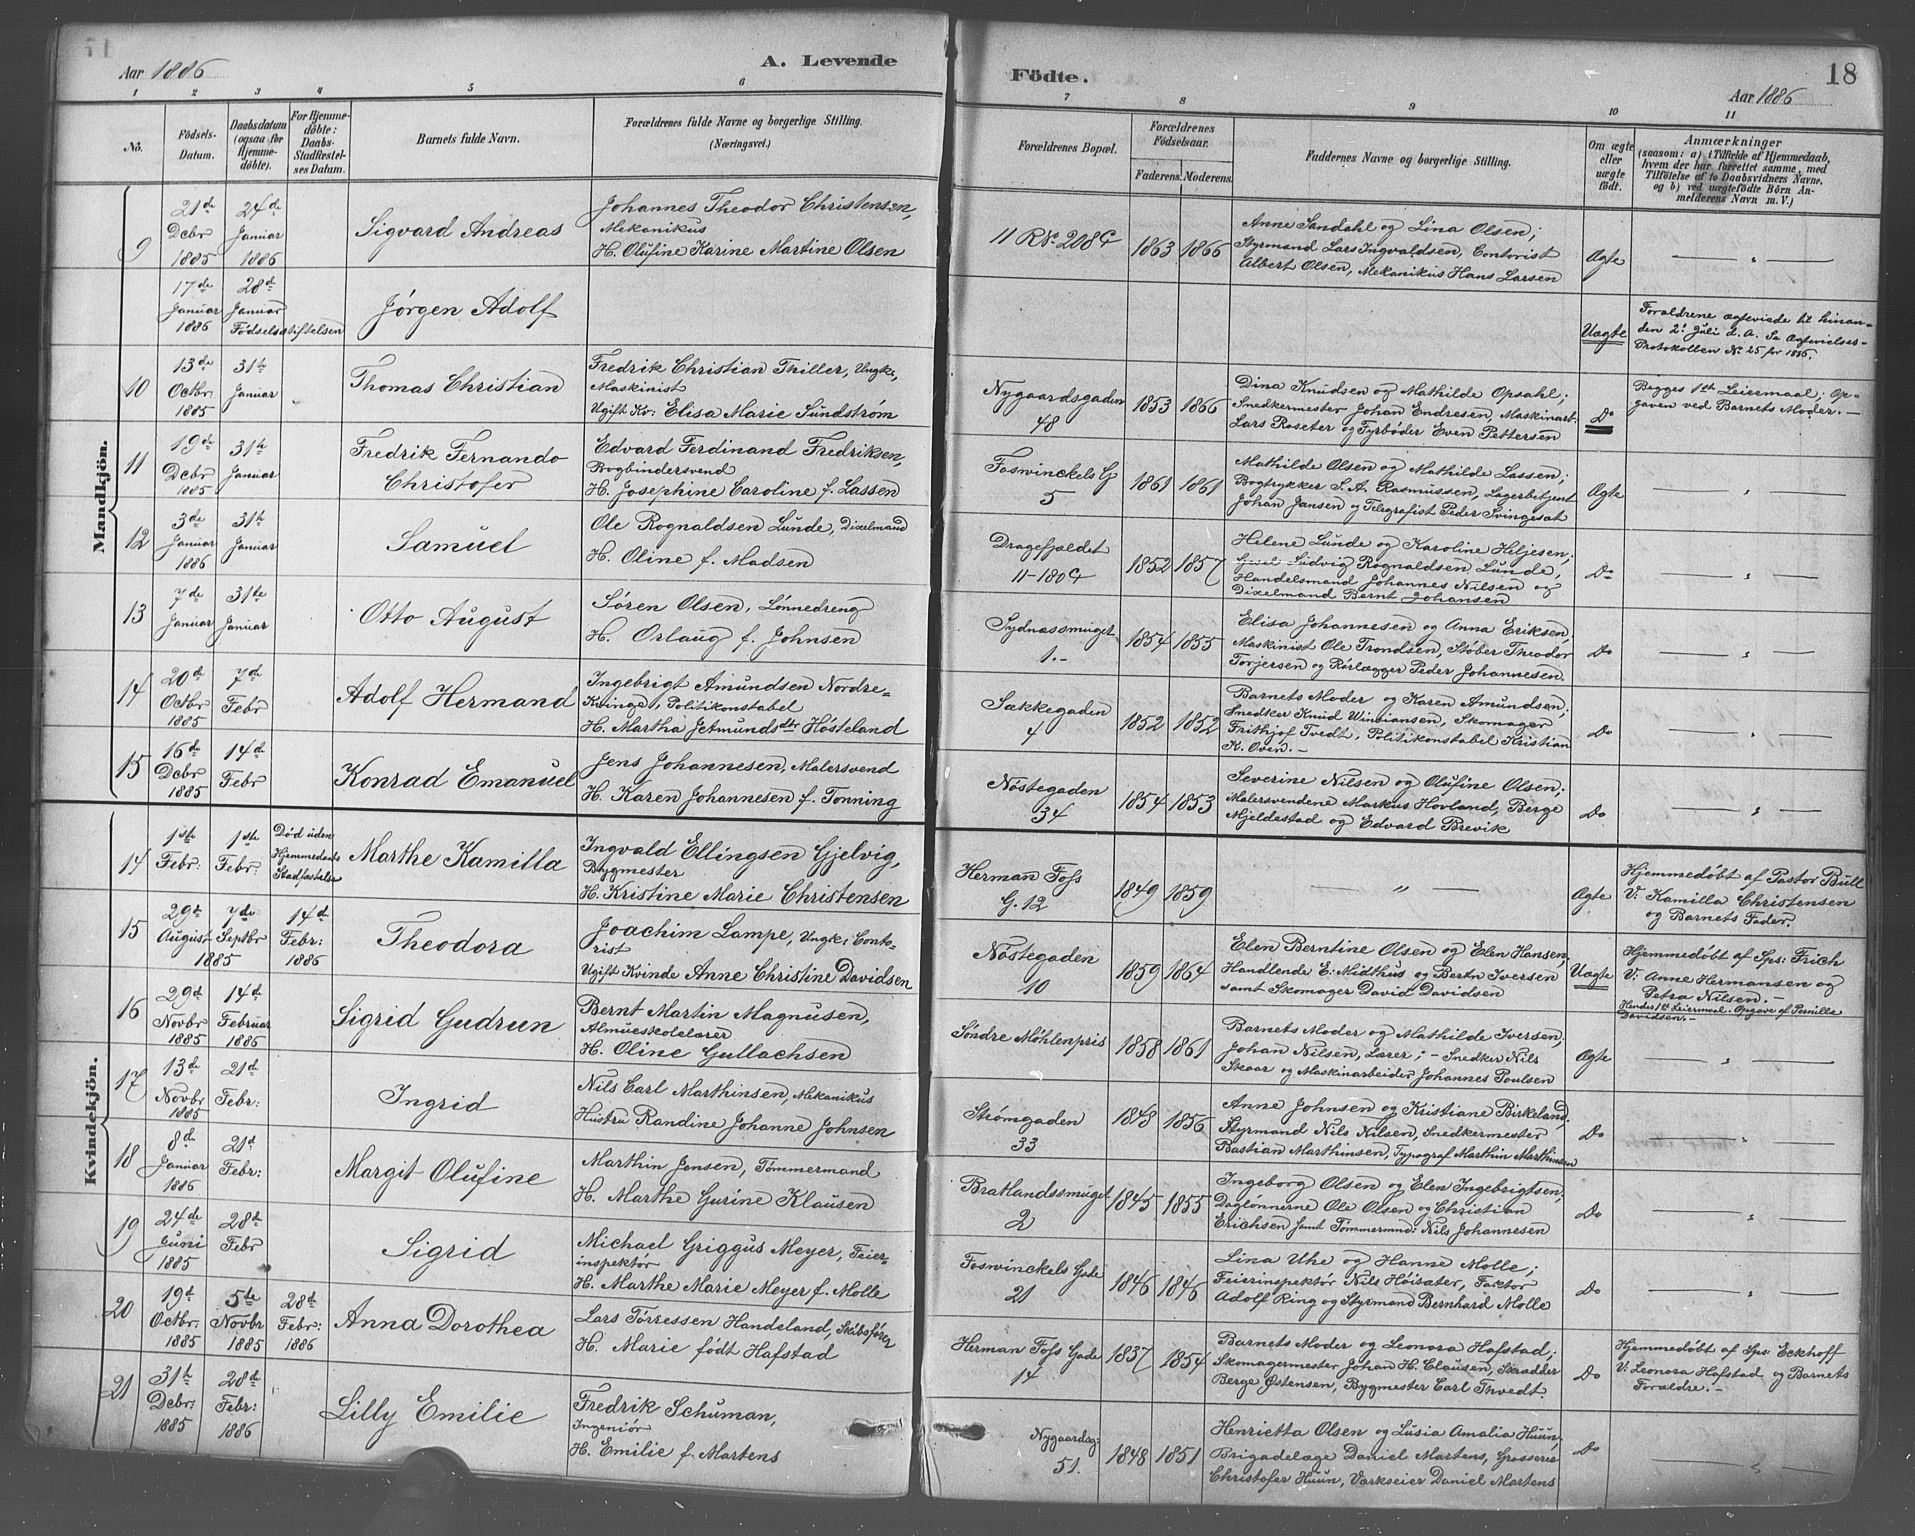 Aar 1886
A. Levende
Födte.
Aar 1886
18
1 2 3 4 5 6 7 8 9 10 11
No.
Födsels-Datum.
Daabsdatum (ogsaa for Hjemme-döbte).
For Hjemme-döbte: Daabs-Stadfæstel-ses Datum.
Barnets fulde Navn.
Forældrenes fulde Navne og borgerlige Stilling. (Næringsvei.)
Forældrenes Bopæl.
Forældrenes Födselsaar.
Faderens. Moderens.
Faddernes Navne og borgerlige Stilling.
Om ægte eller uægte födt.
Anmærkninger
(saasom: a) i Tilfælde af Hjemmedaab,
hvem der har forrettet samme, med
Tilföielse af to Daabsvidners Navne,
og b) ved uægtefödte Börn An-
melderens Navn m. V.)
Mandkjön.
9
21de Decbr 1885
24de Januar 1886
Sigvard Andreas
Johannes Theodor Christensen,
Mekanikus
H. Olufine Karine Martine Olsen
11 R No 208 C
1863 1866
Anne Sandahl og Lina Olsen;
Styrmand Lars Ingvaldsen, Contorist
Albert Olsen, Mekanikus Hans Larsen
Ægte
— " —
17de Januar 1886
28de Januar
Födselsstiftelsen
Jörgen Adolf
Uægte
Forældrene ægteviede til hinan-
den 2. Juli d. A. Se Ægtevielses-
Protokollen No 25 for 1886.
10
13de Octbr: 1885
31te Januar
Thomas Christian
Fredrik Christian Thiller, Ungk.,
Maskinist
Ugift Kv: Elisa Marie Sundström
Nygaardsgaden 48
1853 1866
Dina Knudsen og Mathilde Opsahl;
Snedkermester Johan Endresen, Maskinarb.
Lars Roseter og Fyrböder Even Pettersen
Do
Begges 1ste Leiermaal; Op-
gaven ved Barnets Moder. —
11
19de Decbr 1885
31te Januar
Fredrik Fernando
Christofer
Edvard Ferdinand Fredriksen,
Bogbindersvend
H. Josephine Caroline f. Lassen
Foswinckels G 5
1861 1861
Mathilde Olsen og Mathilde Lassen;
Bogtrykker S. A. Rasmussen, Lagerbetjent
Johan Jansen og Telegrafist Peder Svingesat
Ægte
— " —
12
3de Januar 1886
31te Januar
Samuel
Ole Rognaldsen Lunde, Dixelmand
H. Oline f. Madsen
Dragefjeldet 11-180 C
1852 1857
Helene Lunde og Karoline Heljesen;
Ludvig Rognaldsen Lunde,
Handelsmand Johannes Nilsen og
Dixelmand Bernt Johansen
Do
— " —
13
7de Januar
31te Januar
Otto August
Sören Olsen, Lönnedreng
H. Orlaug f. Johnsen
Sydnæssmuget 1. —
1854 1855
Elisa Johannesen og Anna Eriksen,
Maskinist Ole Trondsen, Stöber Theodor
Torjersen og Rörlægger Peder Johannesen.
Do
— " —
14
20de Octbr 1885
7de Febr
Adolf Hermand
Ingebrigt Amundsen Nordre-
Kvinge, Politikonstabel
H. Martha Jetmundsdtr Hösteland
Sækkegaden 4
1852 1852
Barnets Moder og Karen Amundsen;
Snedker Knud Winsiansen, Skomager
Frithjof Tvedt, Politikonstabel Kristian
K. Oven. —
Do
— " —
15
16de Decbr 1885
14de Febr
Konrad Emanuel
Jens Johannesen, Malersvend
H. Karen Johannesen f. Tonning
Nöstegaden 34
1854 1853
Severine Nilsen og Olufine Olsen;
Malersvendene Markus Hovland, Berge
Mjeldestad og Edvard Brevik
Do
— " —
Kvindekjön.
14
1ste Febr:
1ste Febr:
Död uden Hjemmedaabs Stadfæstelse
Marthe Kamilla
Ingvald Ellingsen Gjelvig,
Bygmester
H. Kristine Marie Christensen
Herman Foss G. 12
1849 1859
— " —
Ægte
Hjemmedöbt af Pastor Bull
V: Kamilla Christensen
og Barnets Fader.
15
29de August
7de Septbr
1885
14de Febr: 1886
Theodora
Joachim Lampe, Ungk: Conto-
rist
Ugift Kvinde Anne Christine Davidsen
Nöstegaden 10
1859 1864
Elen Berntine Olsen og Elen Hansen,
Handlende E. Midthus og Bertn Iversen
samt Skomager David Davidsen
Uægte
Hjemmedöbt af Sps: Frich
V: Anne Hermansen og
Petra Nilsen. —
Hendes 1ste Leiermaal. Opgave af Pernille
Davidsen. —
16
29de Novbr 1885
14de Februar 1886
Sigrid Gudrun
Bernt Martin Magnusen,
Almueskolelærer
H. Oline Gullachsen
Söndre Möhlenpris
1858 1861
Barnets Moder og Mathilde Iversen,
Johan Nilsen, Lærer; — Snedker Nils
Skaar og Maskinarbeider Johannes Poulsen
Ægte
— " —
17
13de Novbr 1885
21de Febr:
Ingrid
Nils Carl Marthinsen, Mekanikus
Hustru Randine Johanne Johnsen
Strömgaden 33
1848 1856
Anne Johnsen og Kristiane Birkeland,
Styrmand Nils Nilsen, Snedkermester
Bastian Marthinsen, Typograf Marthin Marthinsen
Do
— " —
18
8de Januar 1886
21de Febr:
Margit Olufine
Marthin Jensen, Tömmermand
H. Marthe Gurine Klausen
Bratlandssmuget 2
1845 1855
Ingeborg Olsen og Elen Ingebrigtsen,
Daglönnerne Ole Olsen og Christian
Erichsen samt Tömmermnd: Nils Johannesen
Do
— " —
19
24de Juni 1885
28de Febr
Sigrid
Michael Griggus Meyer, Feier-
inspektör
H. Marthe Marie Meyer f. Molle
Foswinckels Gade 21
1846 1846
Lina Uhe og Hanne Molle;
Feierinspektör Nils Höisæter, Faktor
Adolf Ring og Styrmand Bernhard Molle
Do
— " —
20
19de Octbr: 1885
5te Novbr 1885
28de Febr: 1886
Anna Dorothea
Lars Törressen Handeland, Skibsförer
H. Marie födt Hafstad
Herman Foss Gade 14
1837 1854
Barnets Moder og Leonora Hafstad;
Skomagermester Johan H. Clausen, Skrædder
Berge Östensen, Bygmester Carl Thvedt.
Do
Hjemmedöbt af Sps: Eckhoff
V: Leonora Hafstad og Barnets
Forældre. —
21
31te Decbr: 1885
28de Febr: 1886
Lilly Emilie
Fredrik Schuman,
Ingeniör
H. Emilie f. Martens
Nygaardsg: 51.
1848 1851
Henrietta Olsen og Lusia Amalia Huun,
Brigadelæge Daniel Martens, Grosserer
Christofer Huun, Værkseier Daniel Martens
Do
— " —